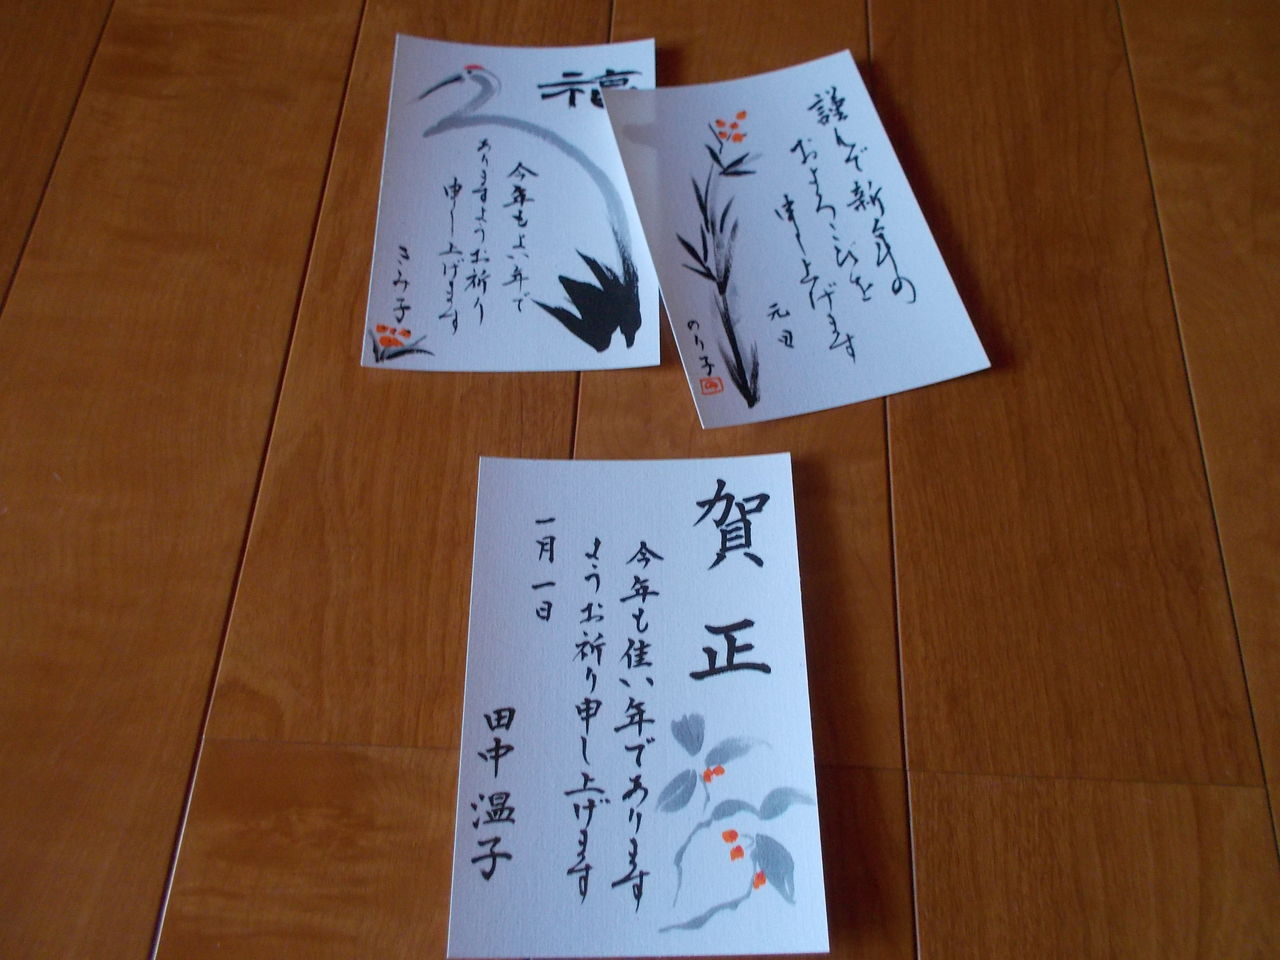 福
今年もよい年で
ありますようお祈り
申し上げます
きみ子
謹んで新年の
およろこびを
申し上げます
元旦
のり子
賀正
今年も佳い年であります
ようお祈り申し上げます
一月一日
田中温子